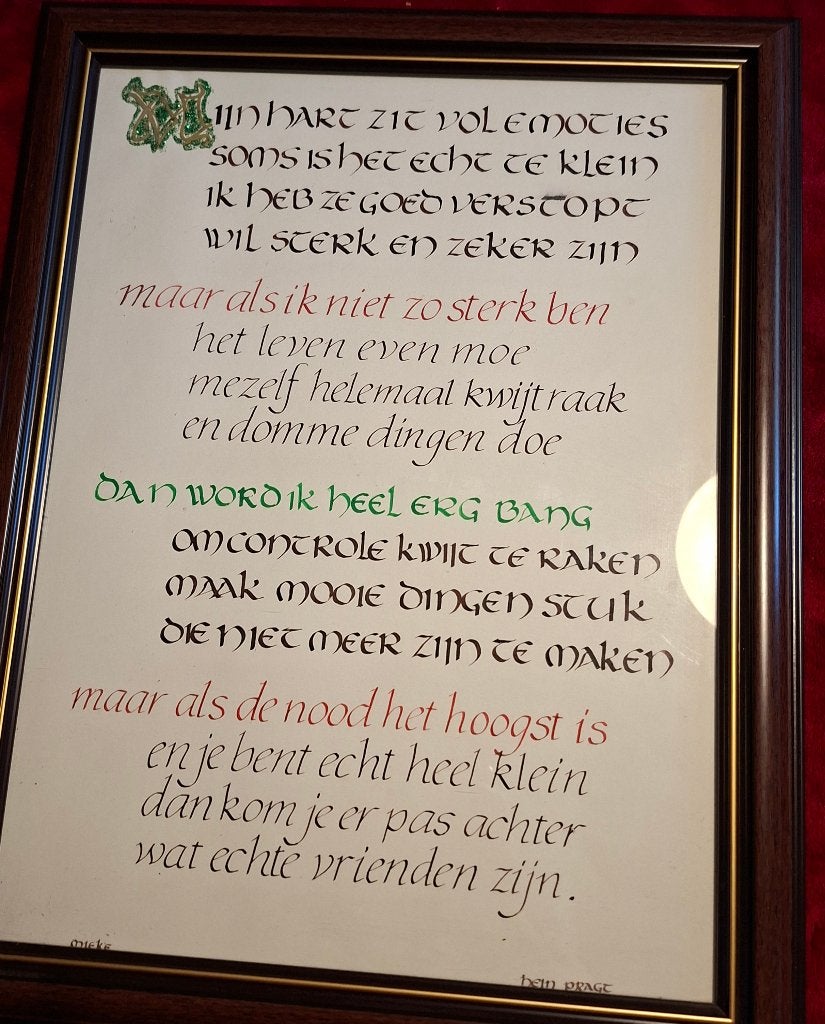 Mijn hart zit vol emoties
soms is het echt te klein
ik heb ze goed verstopt
wil sterk en zeker zijn
maar als ik niet zo sterk ben
het leven even moe
mezelf helemaal kwijtraak
en domme dingen doe
dan word ik heel erg bang
om controle kwijt te raken
maak mooie dingen stuk
die niet meer zijn te maken
maar als de nood het hoogst is
en je bent echt heel klein
dan kom je er pas achter
wat echte vrienden zijn.
mieke
hein pragt